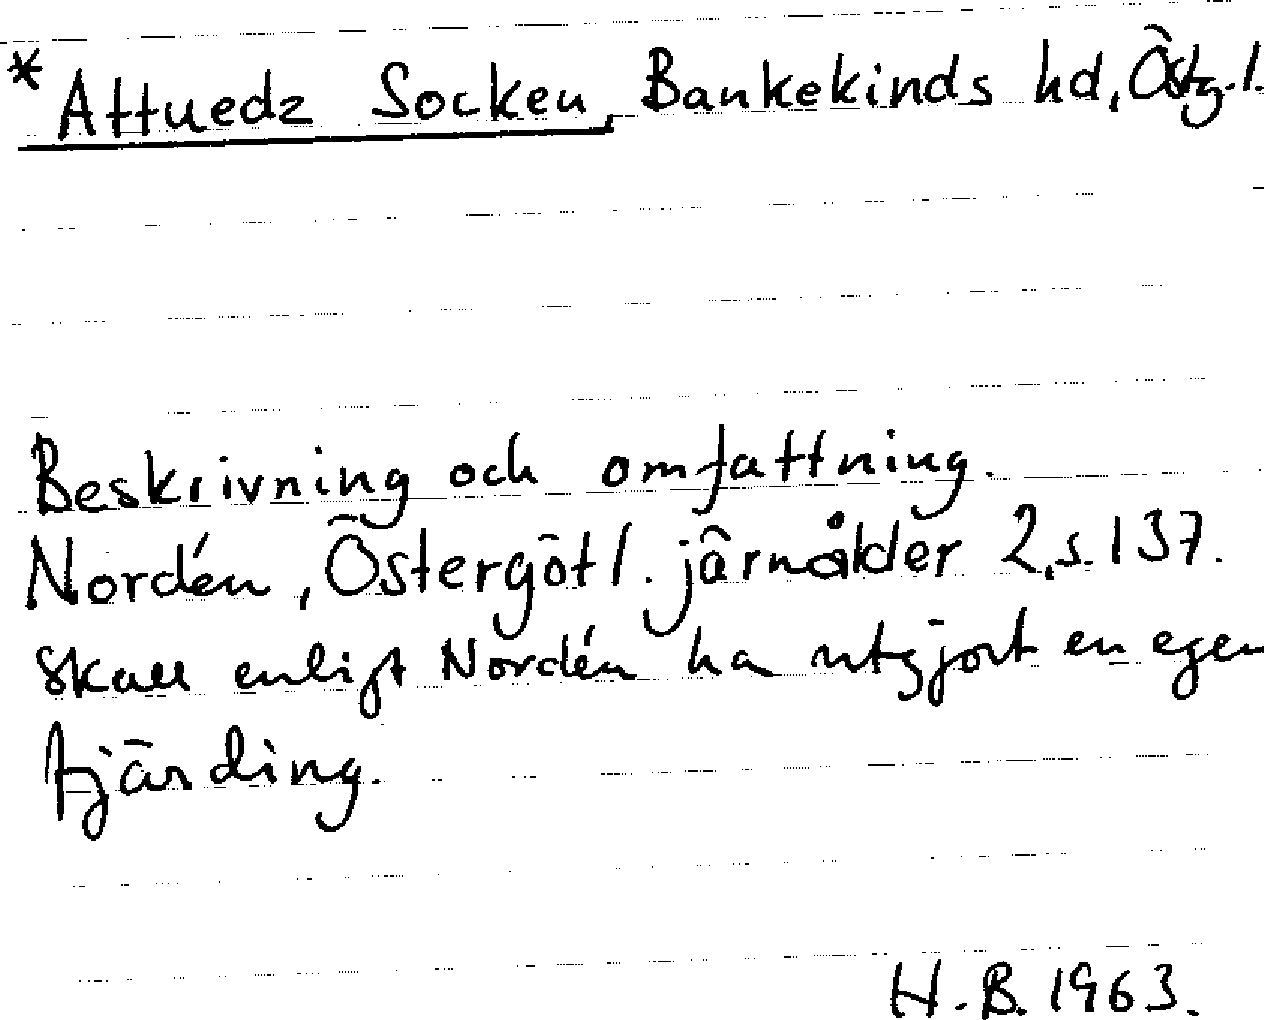 * Attuedz Socken, Bankekinds hd, Östg.l.
Beskrivning och omfattning.
Nordén, Östergötl. järnålder 2, s. 137.
Skall enligt Nordén ha utgjort en egen
fjärding.
H.B. 1963.